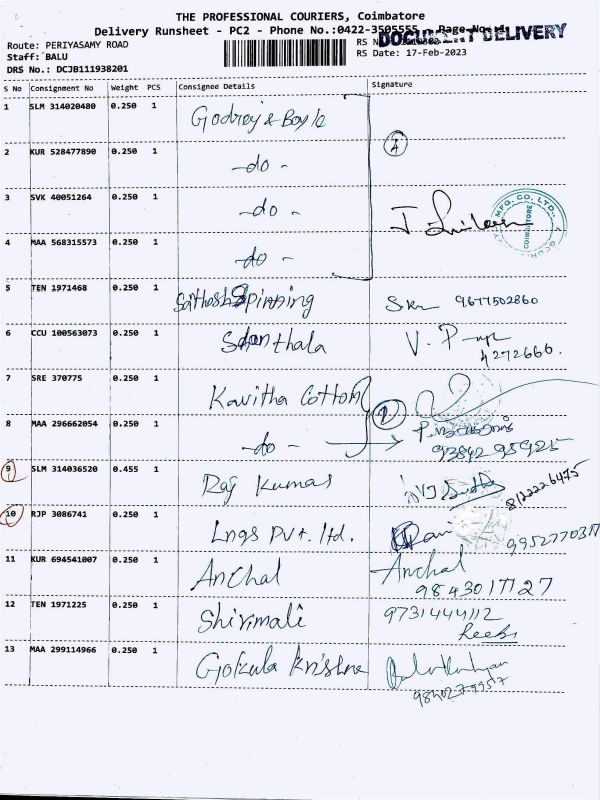 THE PROFESSIONAL COURIERS, Coimbatore
Delivery Runsheet - PC2 - Phone No.:0422-3505555 Page No.:1
DOCUMENT DELIVERY
Route: PERIYASAMY ROAD
Staff: BALU
DRS No.: DCJB111938201
RS Date: 17-Feb-2023
S No Consignment No Weight PCS Consignee Details Signature
1 SLM 314020480 0.250 1 Godrej & Boyle
2 KUR 528477890 0.250 1 -do- 4
3 SVK 40051264 0.250 1 -do-
MFG. CO. LTD.,
COIMBATORE
4 MAA 568315573 0.250 1 -do-
5 TEN 1971468 0.250 1 Sathosh Spinning 9677502860
6 CCU 100563073 0.250 1 V. P
4272666.
7 SRE 370775 0.250 1 Kavitha Cotton
8 MAA 296662054 0.250 1 -do- 2
93842 95925
9 SLM 314036520 0.455 1 Raj Kumar 8122226475
10 RJP 3086741 0.250 1 Lngs Pvt. ltd. 9952770317
11 KUR 694541007 0.250 1 Anchal Anchal
9843017127
12 TEN 1971225 0.250 1 Shirimali 9731444112
13 MAA 299114966 0.250 1 Gokula Krishna